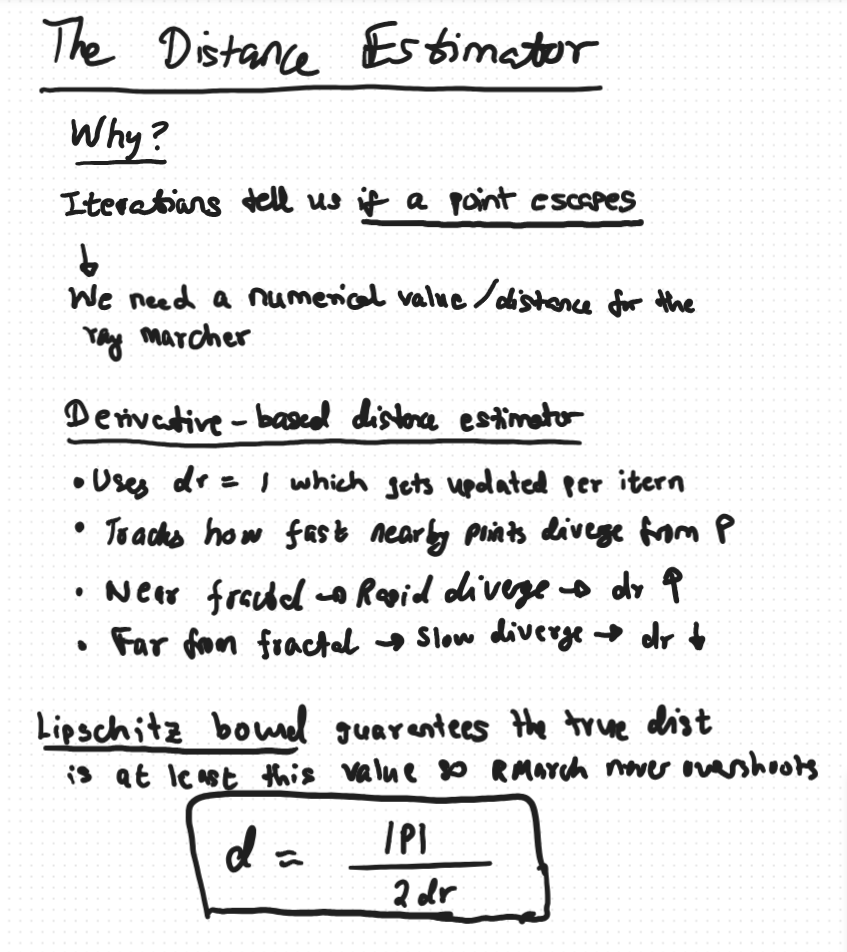 The Distance Estimator
Why?
Iterations tell us if a point escapes
↓
We need a numerical value/distance for the
ray marcher
Derivative-based distance estimator
• Uses dr = 1 which gets updated per itern
• Tracks how fast nearby points diverge from P
• Near fractal → Rapid diverge → dr ↑
• Far from fractal → Slow diverge → dr ↓
Lipschitz bound guarantees the true dist
is at least this value so RMarch never overshoots
d = |P| / 2 dr